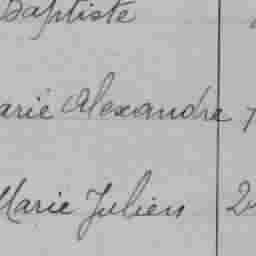 Baptiste
arie Alexandre 7
Marie Julien 2